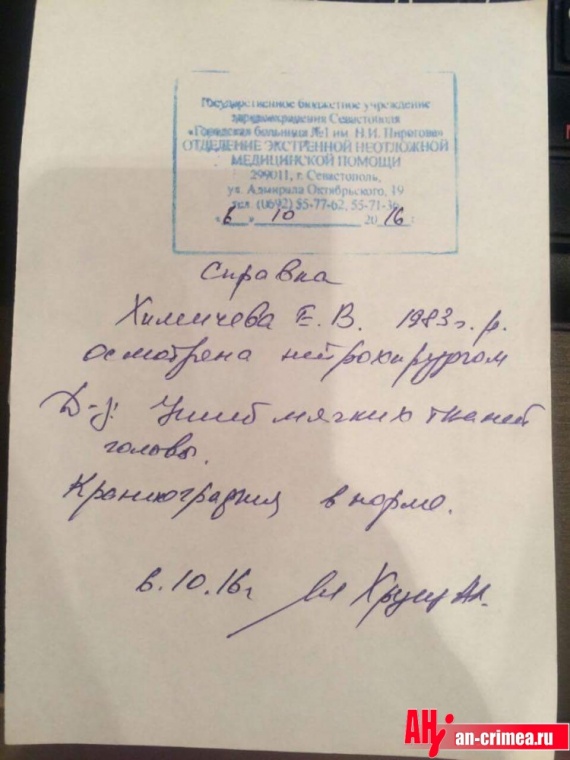 Государственное бюджетное учреждение
здравоохранения Севастополя
«Городская больница №1 им. Н.И. Пирогова»
ОТДЕЛЕНИЕ ЭКСТРЕННОЙ НЕОТЛОЖНОЙ
МЕДИЦИНСКОЙ ПОМОЩИ
299011, г. Севастополь,
ул. Адмирала Октябрьского, 19
тел. (0692) 55-77-62, 55-71-36
«6» 10 2016г
Справка
Химичева Е. В. 1983 г. р.
осмотрена нейрохирургом
D-з: Ушиб мягких тканей
головы.
Краниография в норме.
6.10.16г
АН
an-crimea.ru